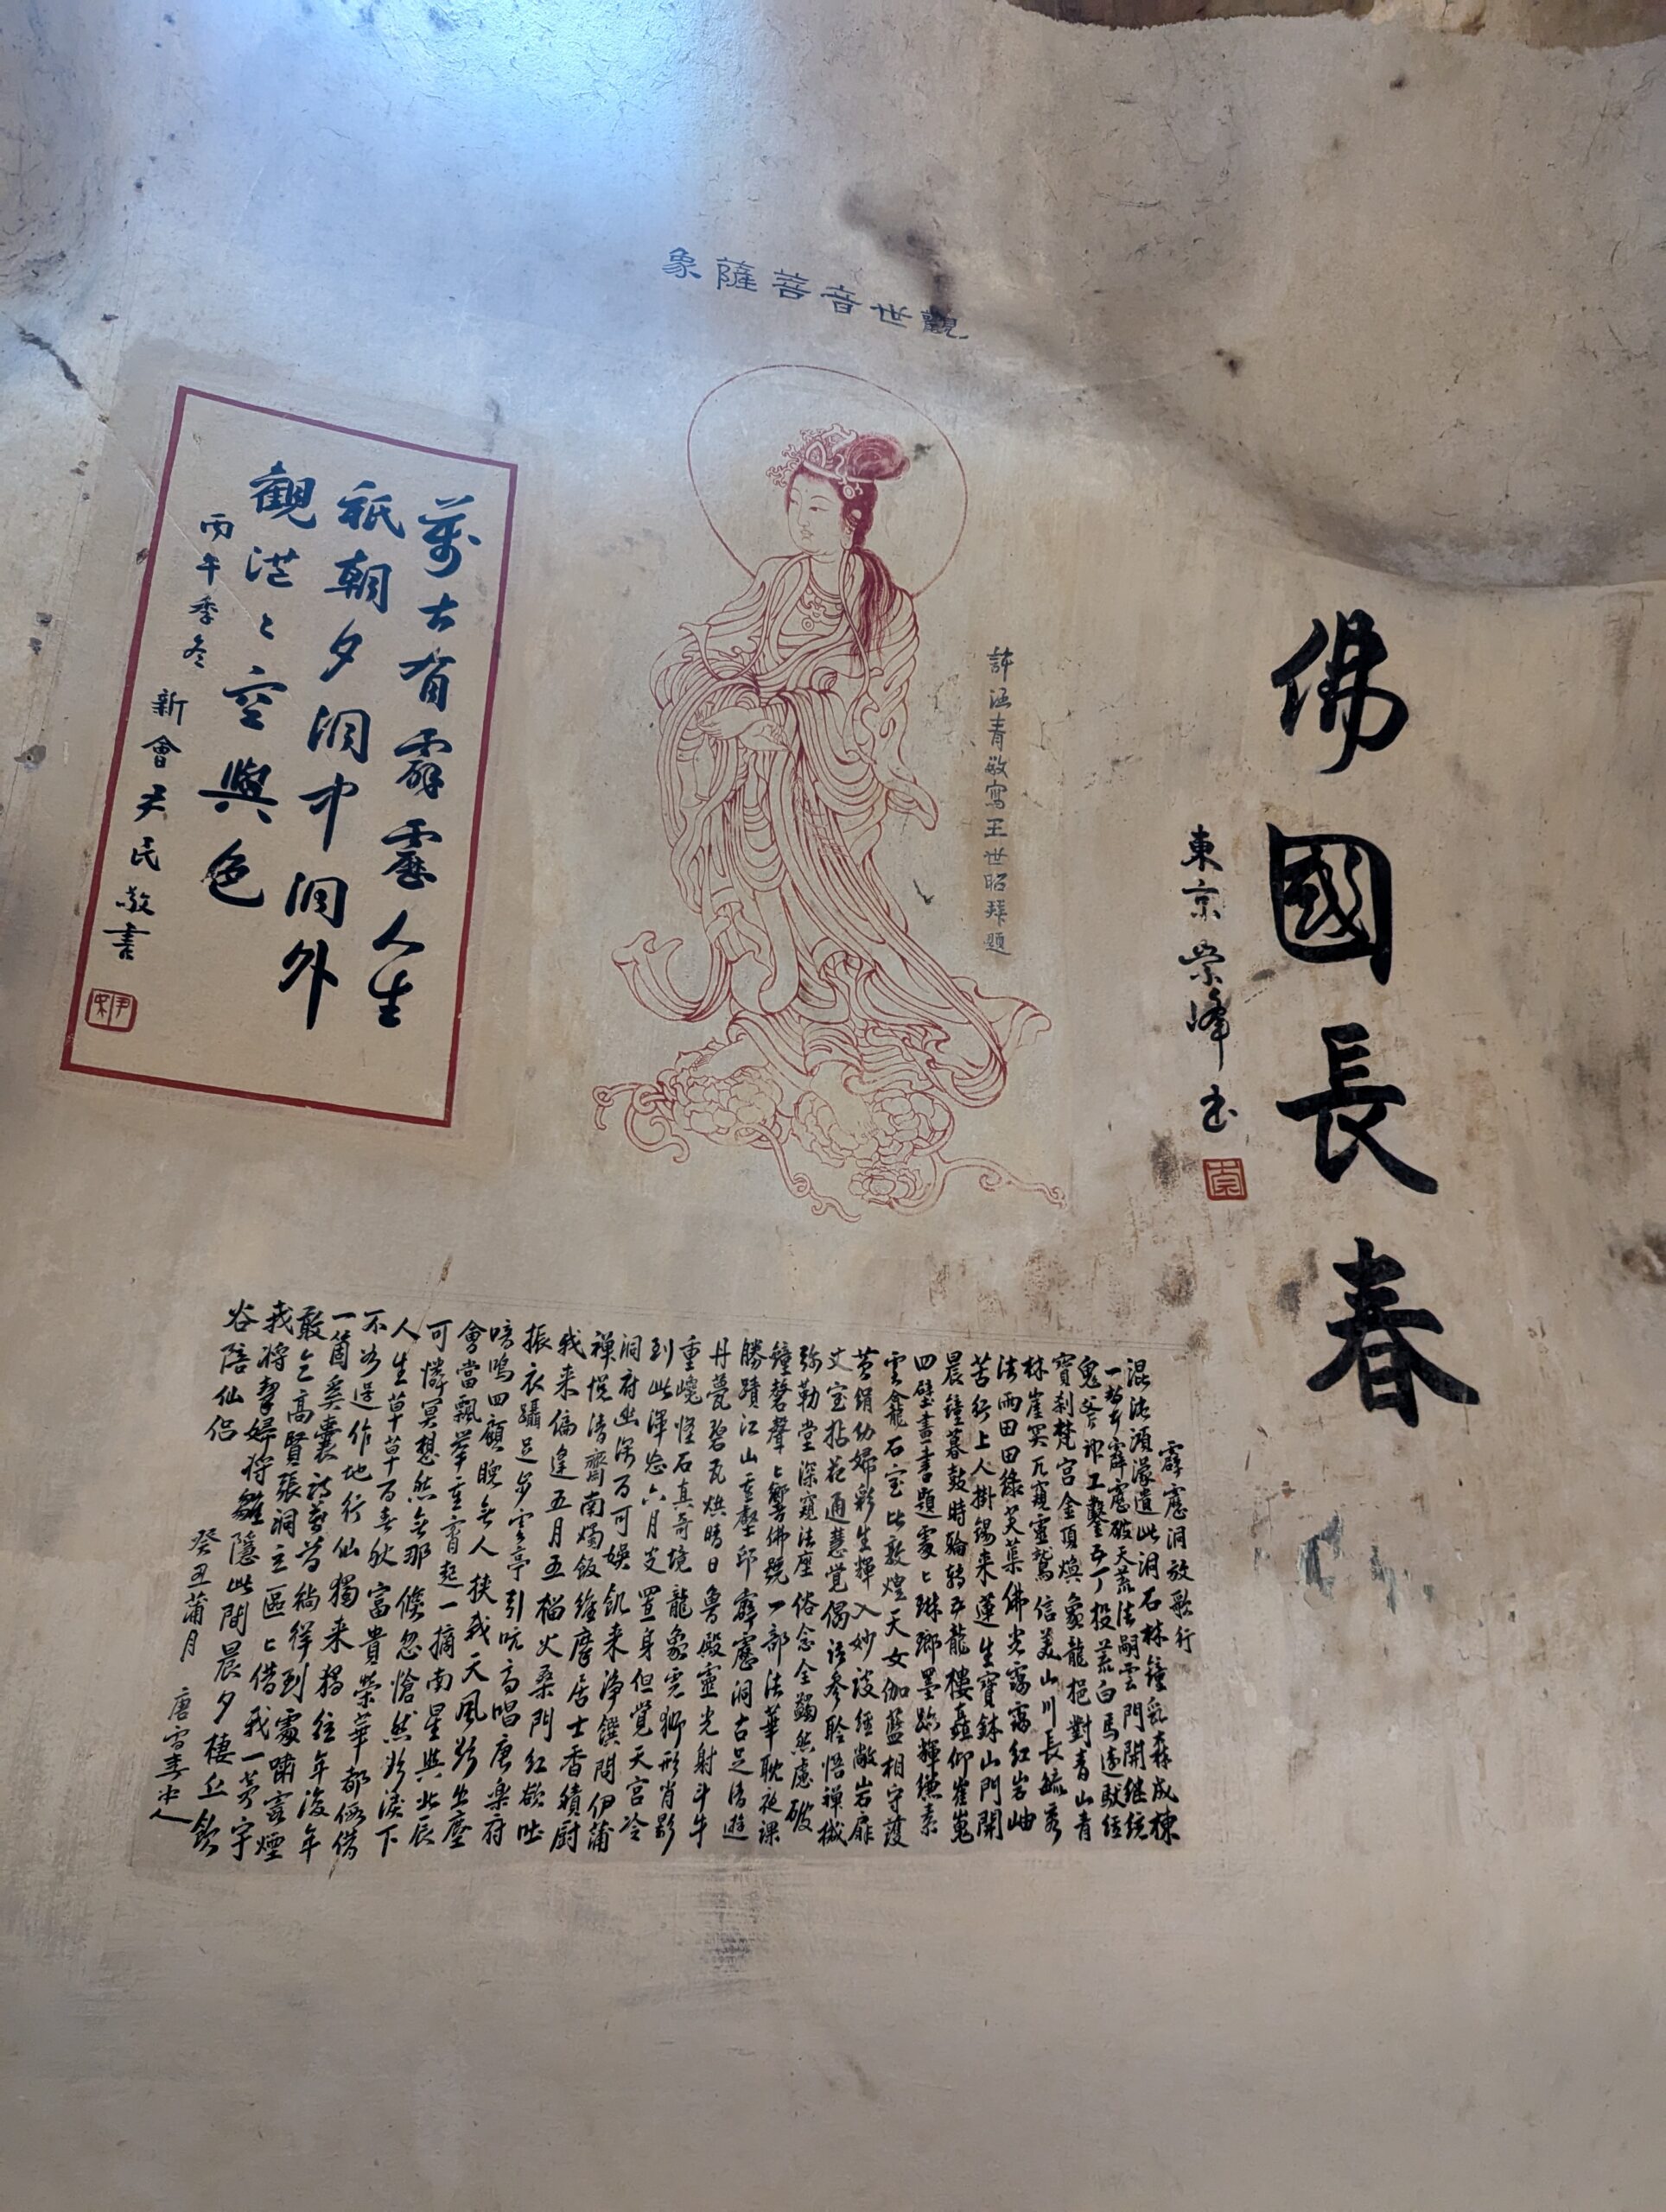 佛國長春
東京榮峰書
觀世音菩薩象
許涵青敬寫王世昭拜題
萬古有霹靂人生
祇朝夕洞中洞外
觀茫々空與色
丙午季冬
新會天民敬書
霹靂洞放歌行
混沌澒濛遺此洞石林鐘乳森成棟
一聲霹靂破天荒法嗣雲門開繼統
鬼斧神工鑿五丁投荒白馬遠馱經
寶刹梵宫金頂煥象龍挹對青山青
林崖冥兀窺靈鷲信美山川長毓秀
法雨田田綠芙蕖佛光靄靄紅岩岫
苦行上人掛錫来蓮生寶鉢山門開
晨鐘暮鼓時輪轉五龍樓矗仰崔嵬
四壁畫書題處々琳瑯墨跡輝縑素
雲龕石室比敦煌天女伽藍相守護
黄絹幼婦彩生輝入妙談經敞岩扉
丈室拈花通慧覺偈語参聆悟禪機
弥勒堂深窺法座俗念全蠲然慮破
鐘磬聲々響佛號一部法華耽夜課
勝蹟江山玉壑邱霹靂洞古足清遊
丹甍碧瓦烘晴日魯殿靈光射斗牛
重嶢怪石真奇境龍象虎獅形肖影
到此渾忘六月炎置身但覺天宫冷
洞府幽深百可娱飢来浄饌問伊蒲
禪悦清齋南燭飯維摩居士香積厨
我来偏逢五月五榴火桑門紅欲吐
振衣躡足步雲亭引吭高唱唐樂府
喑嗚四顧睨無人挟我天風跡出塵
會當飄举重霄起一摘南星與北辰
可憐冥想然無那倏忽愴然珍淚下
人生草草百春秋富貴榮華都假借
不如逞作地行仙獨来獨往年復年
一箇奚囊詩
敢乞高賢張洞主區々借我一茅宇
我將挈婦將雛隱此間晨夕棲丘飲
谷陪仙侣
癸丑蒲月